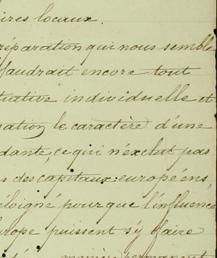 ires locaux.
réparation qui nous semble
faudrait encore tout
tiative individuelle et
ation le caractère d'une
dante, ce qui n'exclut pas
s des capitaux européens,
éloigné pour que l'influence
urope puissent s'y faire